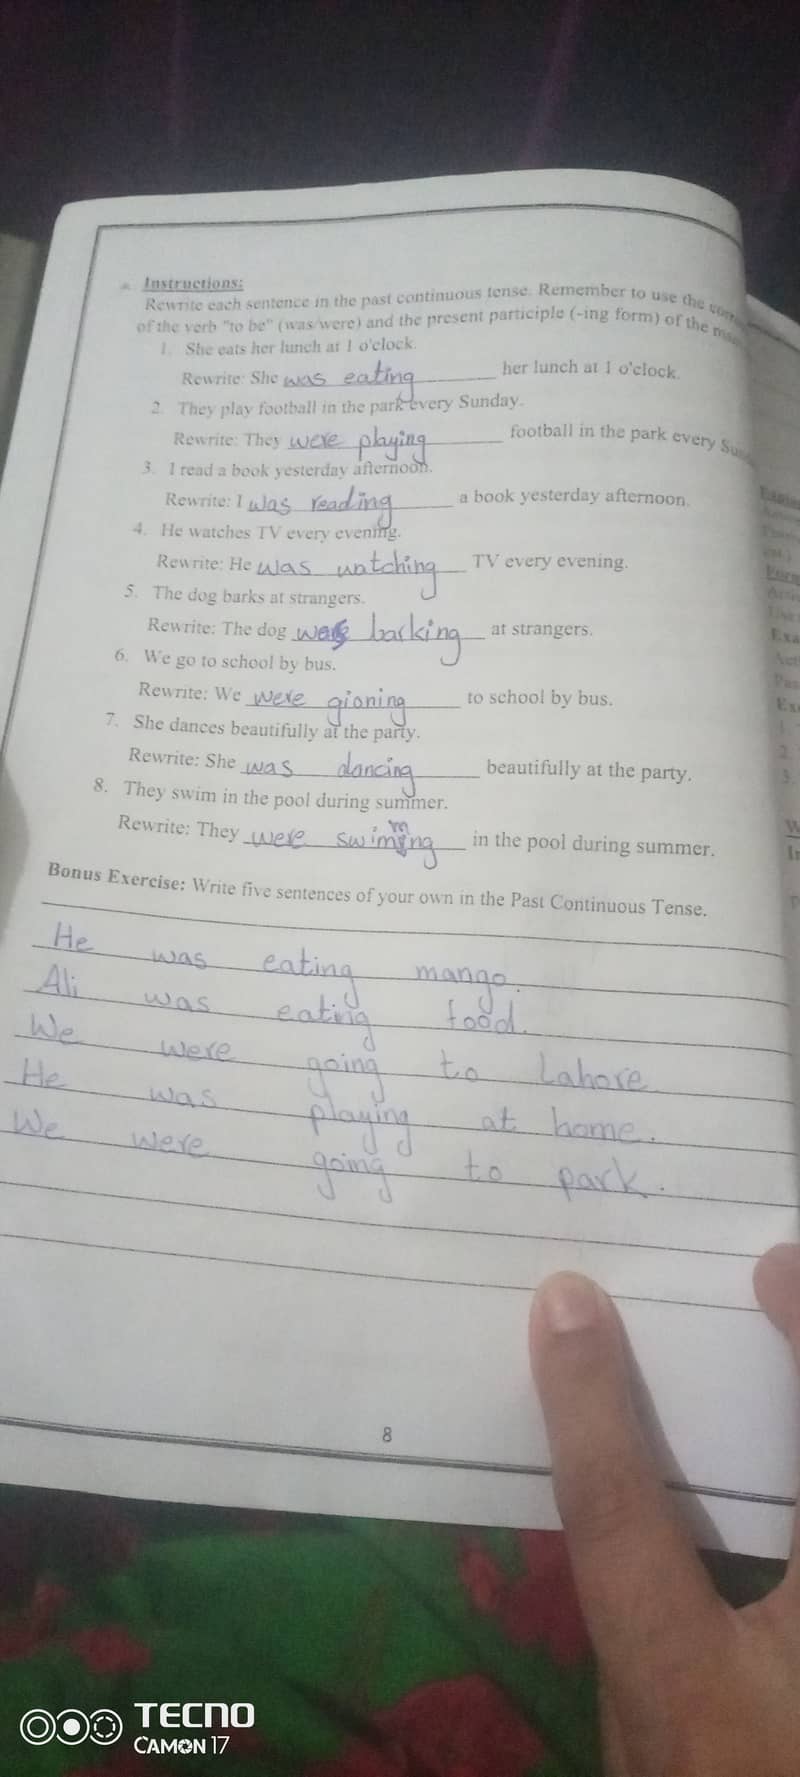 Instructions:
Rewrite each sentence in the past continuous tense. Remember to use the
of the verb "to be" (was/were) and the present participle (-ing form) of the
1. She eats her lunch at 1 o'clock.
Rewrite: She was eating her lunch at 1 o'clock.
2. They play football in the park every Sunday.
Rewrite: They were playing football in the park every
3. I read a book yesterday afternoon.
Rewrite: I was reading a book yesterday afternoon.
4. He watches TV every evening.
Rewrite: He was watching TV every evening.
5. The dog barks at strangers.
Rewrite: The dog was barking at strangers.
6. We go to school by bus.
Rewrite: We were gioning to school by bus.
7. She dances beautifully at the party.
Rewrite: She was dancing beautifully at the party.
8. They swim in the pool during summer.
Rewrite: They were swimming in the pool during summer.
Bonus Exercise: Write five sentences of your own in the Past Continuous Tense.
He was eating mango.
Ali was eating food.
We were going to Lahore
He was playing at home.
We were going to park.
8
TECNO
CAMON 17